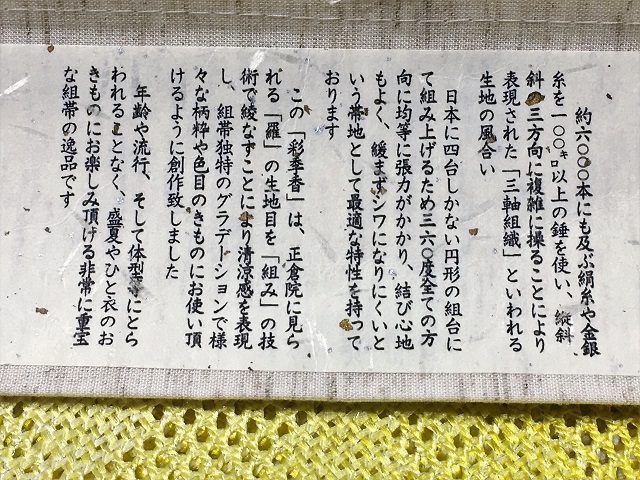 約六〇〇〇本にも及ぶ絹糸や金銀
糸を一〇〇㌔以上の錘を使い、縦斜
斜 三方向に複雑に操ることにより
表現された「三軸組織」といわれる
生地の風合い
日本に四台しかない円形の組台に
て組み上げるため三六〇度全ての方
向に均等に張力がかかり、結び心地
もよく、緩まずシワになりにくいと
いう帯地として最適な特性を持って
おります
この「彩季香」は、正倉院に見ら
れる「羅」の生地目を「組み」の技
術で綾なすことにより清涼感を表現
し、組帯独特のグラデーションで様
々な柄粋や色目のきものにお使い頂
けるように創作致しました
年齢や流行、そして体型等にとら
われることなく、盛夏やひと衣のお
きものにお楽しみ頂ける非常に重宝
な組帯の逸品です